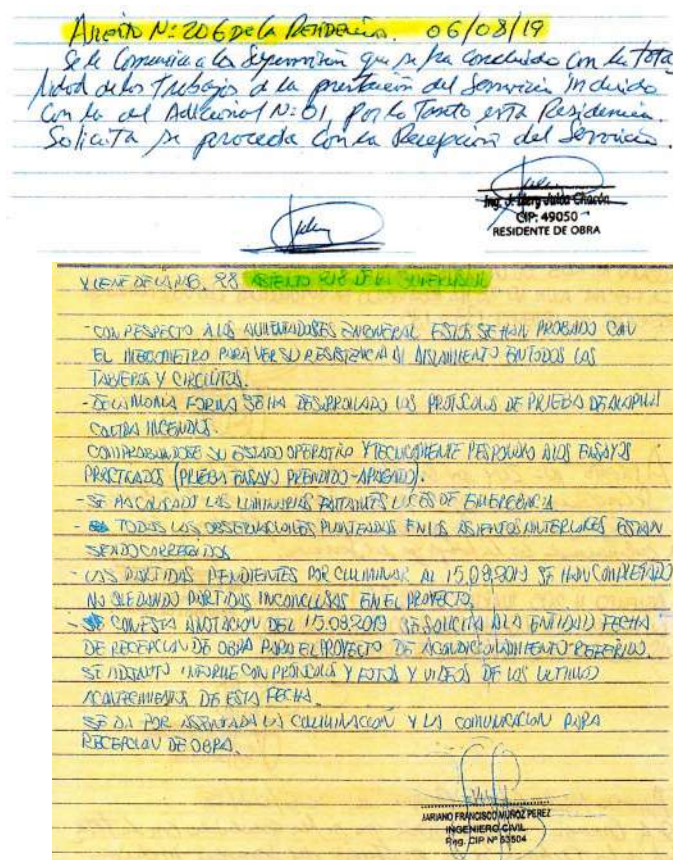 Asiento N: 206 DE LA Residencia. 06/08/19
Se le Comunica a la Supervisión que se ha Concluido Con la Tota
lidad de los Trabajos de la prestación del Servicio incluido
Con la del Adicional N: 01, por lo Tanto esta Residencia.
Solicita se proceda Con la Recepción del Servicio.
Ing. J. Mery Julca Chacón
CIP: 49050
RESIDENTE DE OBRA
VIENE DE LA PAG. 28 ASIENTO 218 DE LA SUPERVISION
- CON RESPECTO A LOS ALIMENTADORES EN GENERAL ESTOS SE HAN PROBADO CON
EL MEGOMETRO PARA VER SU RESISTENCIA AL AISLAMIENTO EN TODOS LOS
TABLEROS Y CIRCUITOS.
- DE LA MISMA FORMA SE HA DESARROLLADO LOS PROTOCOLOS DE PRUEBA DE ALARMA
CONTRA INCENDIOS.
COMPROBANDOSE SU ESTADO OPERATIVO Y TECNICAMENTE RESPONDIO A LOS ENSAYOS
PRACTICADOS (PRUEBA ENSAYO PRENDIDO-APAGADO).
- SE HA COLOCADO LAS LUMINARIAS FALTANTES LUCES DE EMERGENCIA
- TODAS LAS OBSERVACIONES PLANTEADAS EN LOS ASIENTOS ANTERIORES ESTAN
SIENDO CORREGIDOS
- LAS PARTIDAS PENDIENTES POR CULMINAR AL 15.08.2019 SE HAN COMPLETADO
NO QUEDANDO PARTIDAS INCONCLUSAS EN EL PROYECTO.
- CON ESTA ANOTACION DEL 15.08.2019 SE SOLICITA A LA ENTIDAD FECHA
DE RECEPCION DE OBRA PARA EL PROYECTO DE ACONDICIONAMIENTO REFERIDO.
SE ADJUNTO INFORME CON PROTOCOLOS Y FOTOS Y VIDEOS DE LOS ULTIMOS
ACONTECIMIENTOS DE ESTA FECHA.
SE DA POR ASENTADA LA CULMINACION Y LA COMUNICACION PARA
RECEPCION DE OBRA.
MARIANO FRANCISCO MUÑOZ PEREZ
INGENIERO CIVIL
Reg. CIP Nº 63504